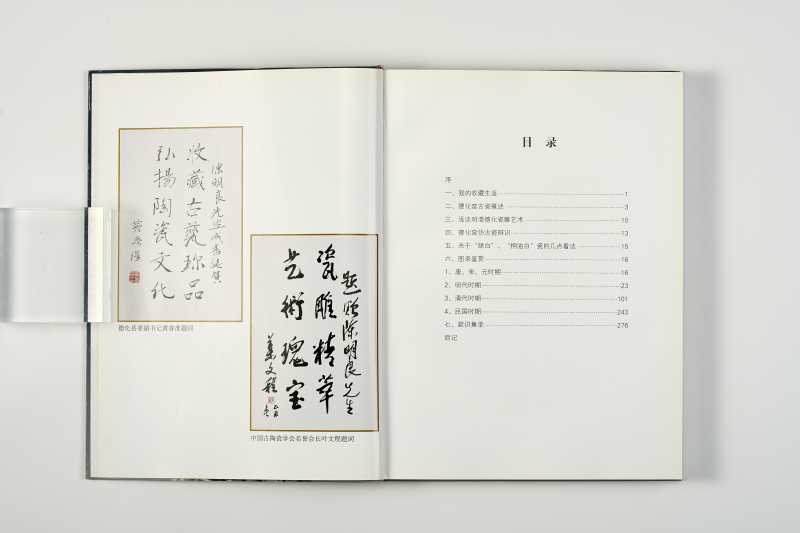 陳明良先生成書誌賀
收藏古瓷珍品
弘揚陶瓷文化
德化县委副书记黄春淮题词
题赠陈明良先生
瓷雕精萃
艺術瑰宝
叶文程
中国古陶瓷学会名誉会长叶文程题词
目 录
序
一、我的收藏生涯 1
二、德化窑古瓷概述 3
三、浅谈明清德化瓷雕艺术 10
四、德化窑仿古瓷辨识 13
五、关于“猪油白”瓷的几点看法 15
六、图录鉴赏 16
1、唐、宋、元时期 16
2、明代时期 23
3、清代时期 101
4、民国时期 243
七、款识集录 276
后记